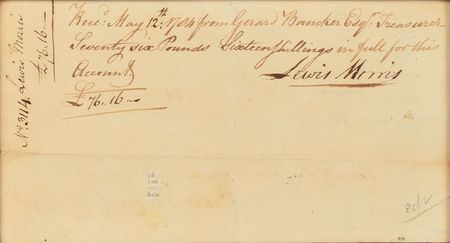 Rec.d May 12th. 1784 from Gerard Bancker Esqr. Treasurer
Seventy six Pounds Sixteen shillings in full for this
Account
£76.16—
Lewis Morris
No. 3114. Lewis Morris
£76.16.—